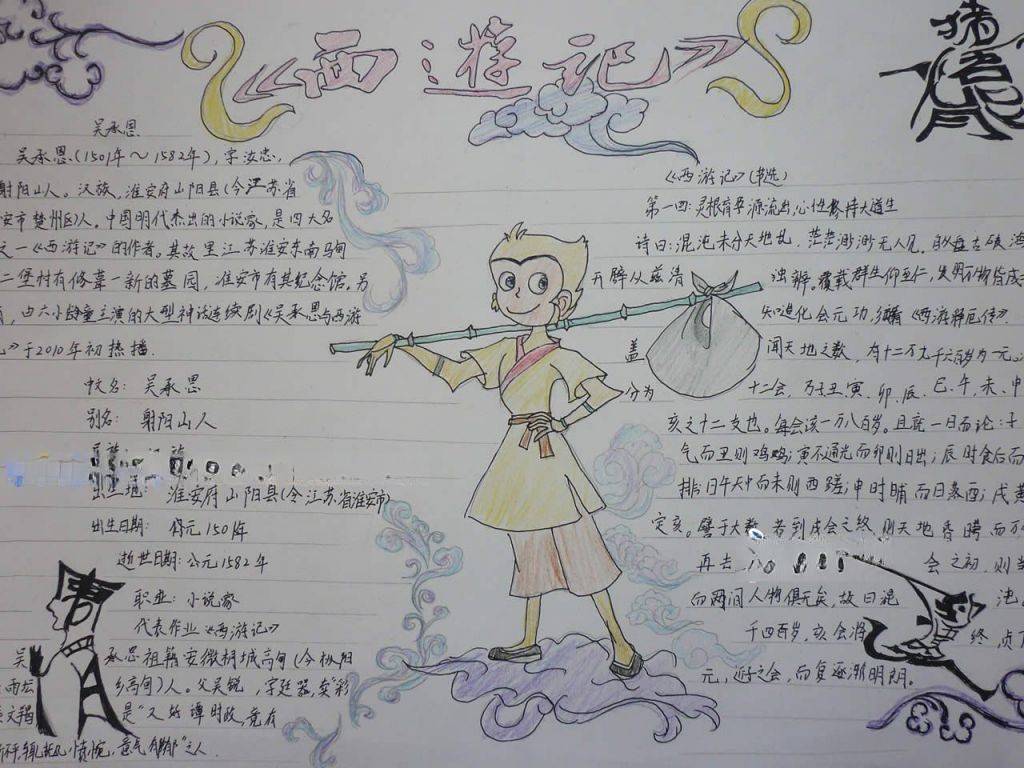 《西游记》
猪
吴承恩
吴承恩(1501年～1582年),字汝忠,
射阳山人。汉族,淮安府山阳县(今江苏省
安市楚州区)人。中国明代杰出的小说家,是四大名
之一《西游记》的作者。其故里江苏淮安东南马甸
二堡村有修葺一新的墓园,淮安市有其纪念馆。另
,由六小龄童主演的大型神话连续剧《吴承恩与西游
》于2010年初热播.
吴承恩
别名: 射阳山人
出生地: 淮安府山阳县(今江苏省淮安市)
出生日期: 公元1501年
逝世日期:公元1582年
职业: 小说家
代表作业《西游记》
吴承恩祖籍安徽桐城高甸(今枞阳
雨坛乡高甸)人。父吴锐,字廷器,卖“彩
文稿 是“又好谭时政,竟有
所不平,辄抚几愤惋,意气郁郁”之人.
《西游记》(节选)
第一回:灵根育孕源流出,心性修持大道生
诗曰:混沌未分天地乱,茫茫渺渺无人见。自从盘古破鸿
开辟从兹清浊辨。覆载群生仰至仁,发明万物皆成
知造化会元功,须看《西游释厄传》.
盖闻天地之数,有十二万九千六百岁为一元。
分为十二会,乃子丑、寅、卯、辰、巳、午、未、申
亥之十二支也。每会该一万八百岁。且就一日而论:子
气而丑则鸡鸣;寅不通光而卯则日出;辰时食后而
排;日午天中而未则西蹉;申时晡而日落酉;戌黄
定亥。譬于大数,若到戌会之终,则天地昏曚而
再去 会之初,则
而两间人物俱无矣,故曰混沌
千四百岁,亥会将终,贞下
元,近子之会,而复逐渐明朗。
唐